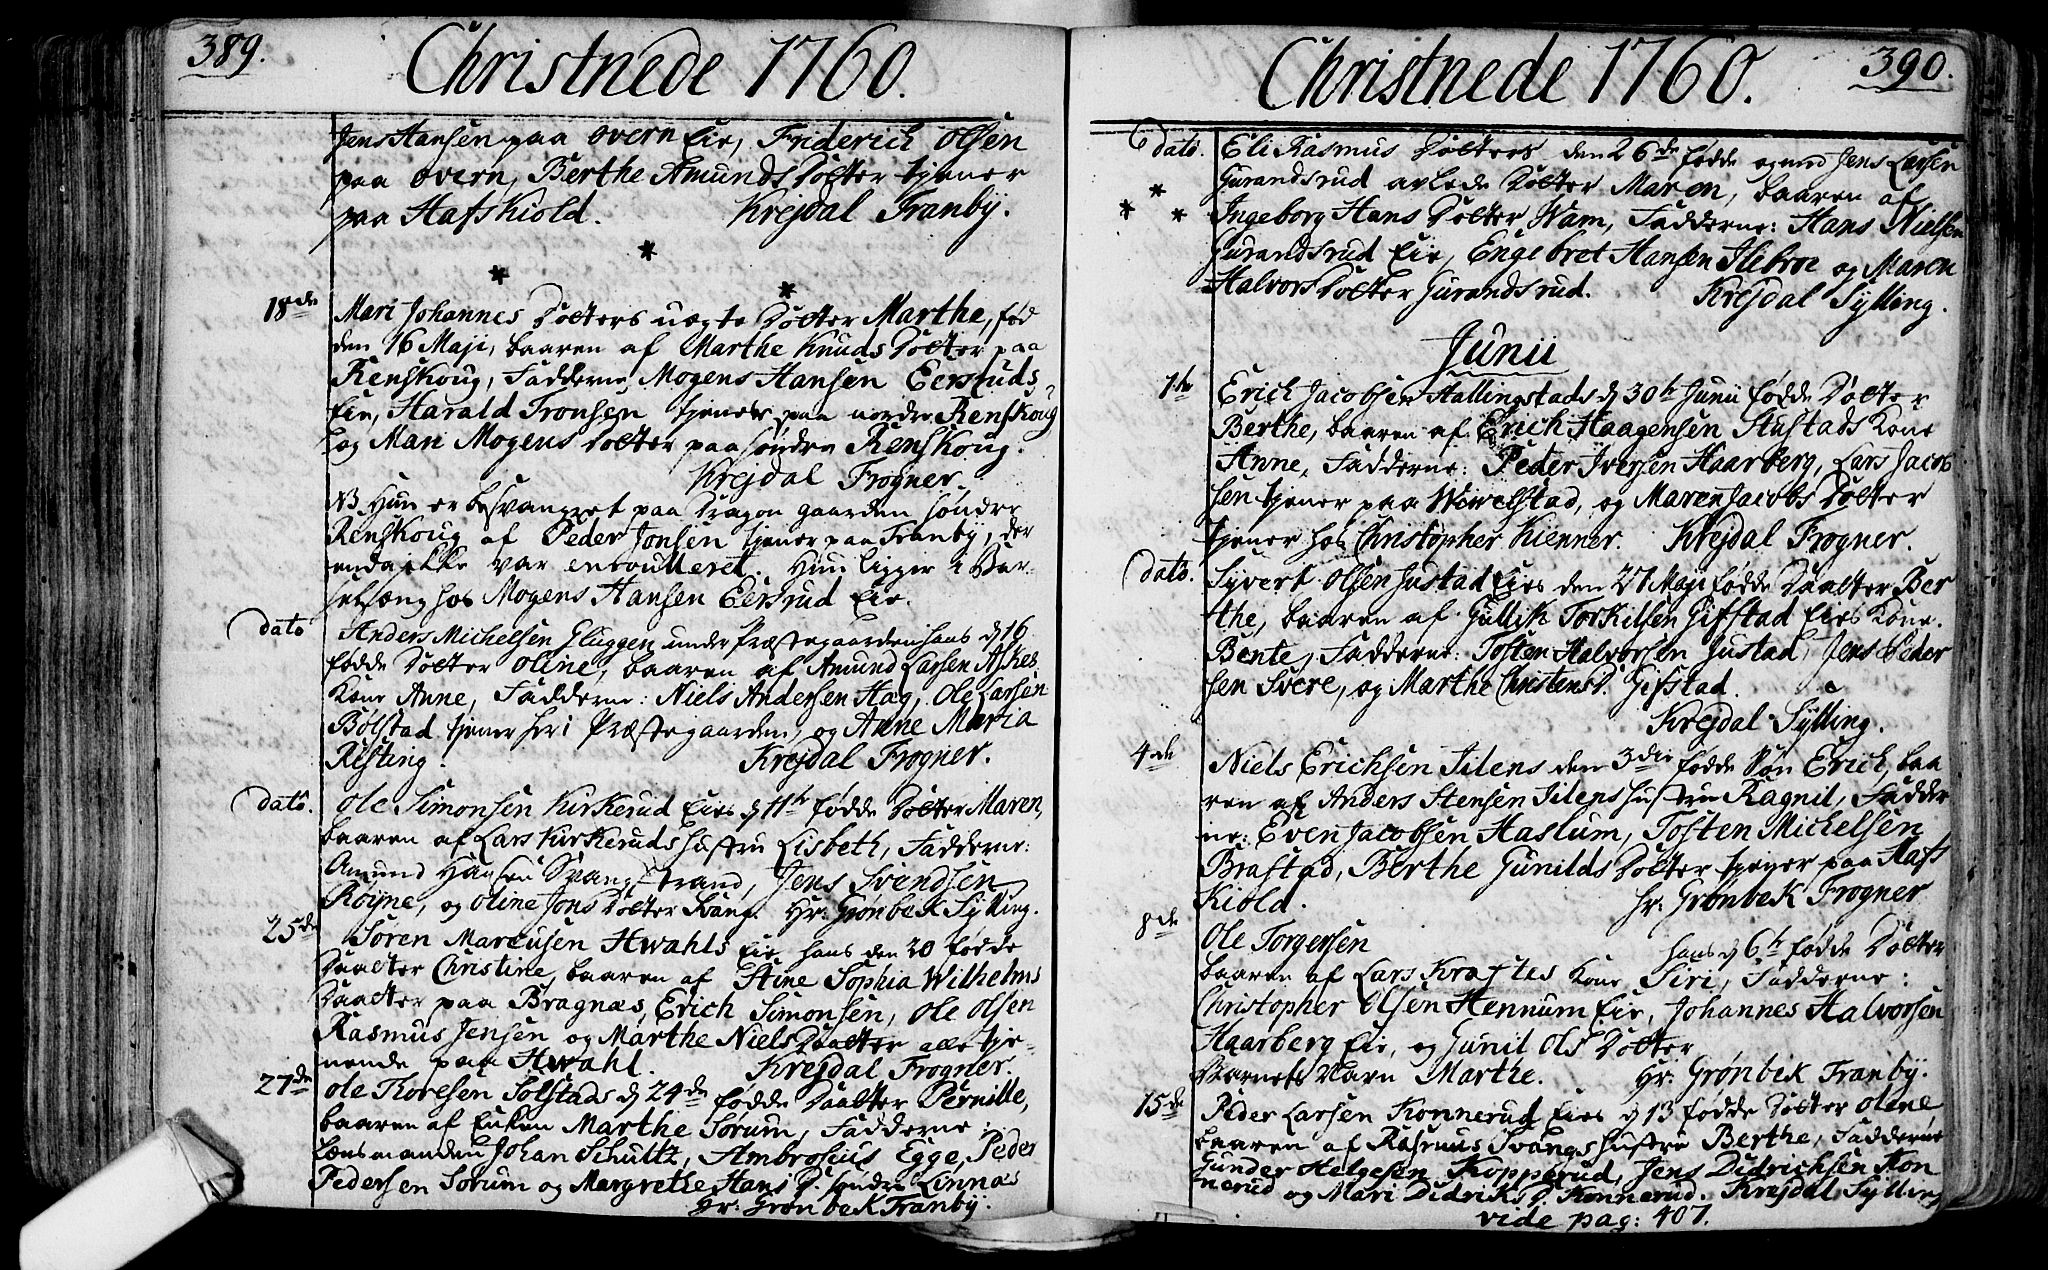 389.
Christnede 1760.
Jens Hansen paa Overn Eie, Friderich Olsen
paa Overn, Berthe Amunds Dotter tjener
paa Hafskiold. Krejdal Franby.
* * *
18de Mari Johannes Dotters uægte Dotter Marthe, fød
den 16 Maji, baaren af Marthe Knuds Dotter paa
Renskoug, Fadderne, Mogens Hansen Eersruds
Eie, Harald Tronsen tjener paa nordre Renskoug
og Mari Mogens Dotter paa søndre Renskoug.
Krejdal Frogner.
NB. Hun er besvangret paa Dragon gaarden søndre
Renskoug af Peder Jonsen tjener paa Franby, der
enda ikke var enroulleret. Hun ligger i Bar-
selseng hos Mogens Hansen Eersrud Eie.
dato Anders Michelsen Gluggen under Præstegaarden hans d 16
fødde Dotter Oline, baaren af Amund Larsen Askes
Kone Anne, Fadderne: Niels Andersen Hag, Ole Larsen
Bølstad tjener her i Præstegaarden, og Anne Maria
Resting. Krejdal Frogner.
dato. Ole Simonsen Kirkerud Eies d 11te fødde Dotter Maren,
baaren af Lars Kirkeruds Hustru Lisbeth, Fadderne:
Amund Hansen Svangstrand, Jens Svendsen
Røyne, og Oline Jons Dotter Svang. Hr: Grønbek Sylling.
25de Søren Marcusen Hwahls Eie hans den 20 fødde
Daatter Christine, baaren af Stine Sophia Wilhelms
Daatter paa Bragnæs, Erich Simonsen, Ole Olsen
Rasmus Jensen og Marthe Niels Daatter alle tje-
nende paa Hwahl. Krejdal Frogner.
27de Ole Thoresen Solstads d 24de fødde Daatter Pernille,
baaren af Enken Marthe Sorum, Fadderne:
Lensmanden Johan Schultz, Ambrosius Egge, Peder
Pedersen Sorum og Margrethe Hans D. søndre Linnæs
Hr: Grønbek Franby.
390.
Christnede 1760.
dato. Eli Rasmus Dotters den 26de fødde og med Jens Larsen
Gurandsrud avlede Dotter Maren, baaren af
* * * Ingeborg Hans Dotter Wam, Fadderne: Hans Nielsen
Gurandsrud Eie, Engebret Hansen Ilebroe og Maren
Halvors Dotter Gurandsrud. Krejdal Sylling.
Junii
1te Erich Jacobsen Hallingstads d 30te Junii fødde Dotter
Berthe, baaren af Erich Haagensen Stustads Kone
Anne, Fadderne: Peder Iversen Haarberg, Lars Jacob
sen tjener paa Wiwelstad, og Maren Jacobs Dotter
tjener hos Christopher Kienner. Krejdal Frogner.
dato. Syvert Olsen Justad Eies den 27 Maji fødde Daatter Ber
the, baaren af Gullik Torkilsen Gifstad Eies Kone.
Bente, Fadderne: Tosten Halvorsen Justad, Jens Peder
sen Svere, og Marthe Christens D. Gifstad.
Krejdal Sylling.
4de Niels Erichsen Silens den 3die fødde Søn Erich, baa
ren af Anders Stensen Silens Hustru Ragnil, Fadder
ne: Even Jacobsen Haslum, Tosten Michelsen
Brastad, Berthe Gunilds Dotter tjener paa Hafs
Kiold. Hr: Grønbek Frogner
8de Ole Torgersen hans d 6te fødde Dotter
baaren af Lars Kraftes Kone Siri, Fadderne:
Christopher Olsen Hennum Eie, Johannes Halvorsen
Haarberg Eie, og Gunil Ols Dotter
Barnets Navn Marthe. Hr: Grønbek Franby.
15de Peder Larsen Konnerud Eies d 13 fødde Dotter Oline
baaren af Rasmus Svangs Hustru Berthe, Fadderne
Gunder Helgesen Kopperud, Jens Didrichsen Kon
nerud og Mari Didriks D. Konnerud. Krejdal Sylling
vide pag: 407.